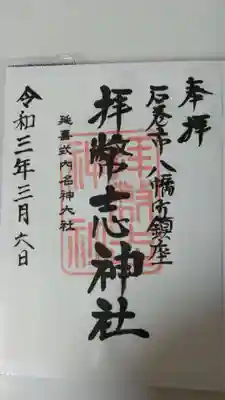 奉拝
石巻市八幡町鎮座
拝幣志神社
延喜式内名神大社
令和三年三月六日